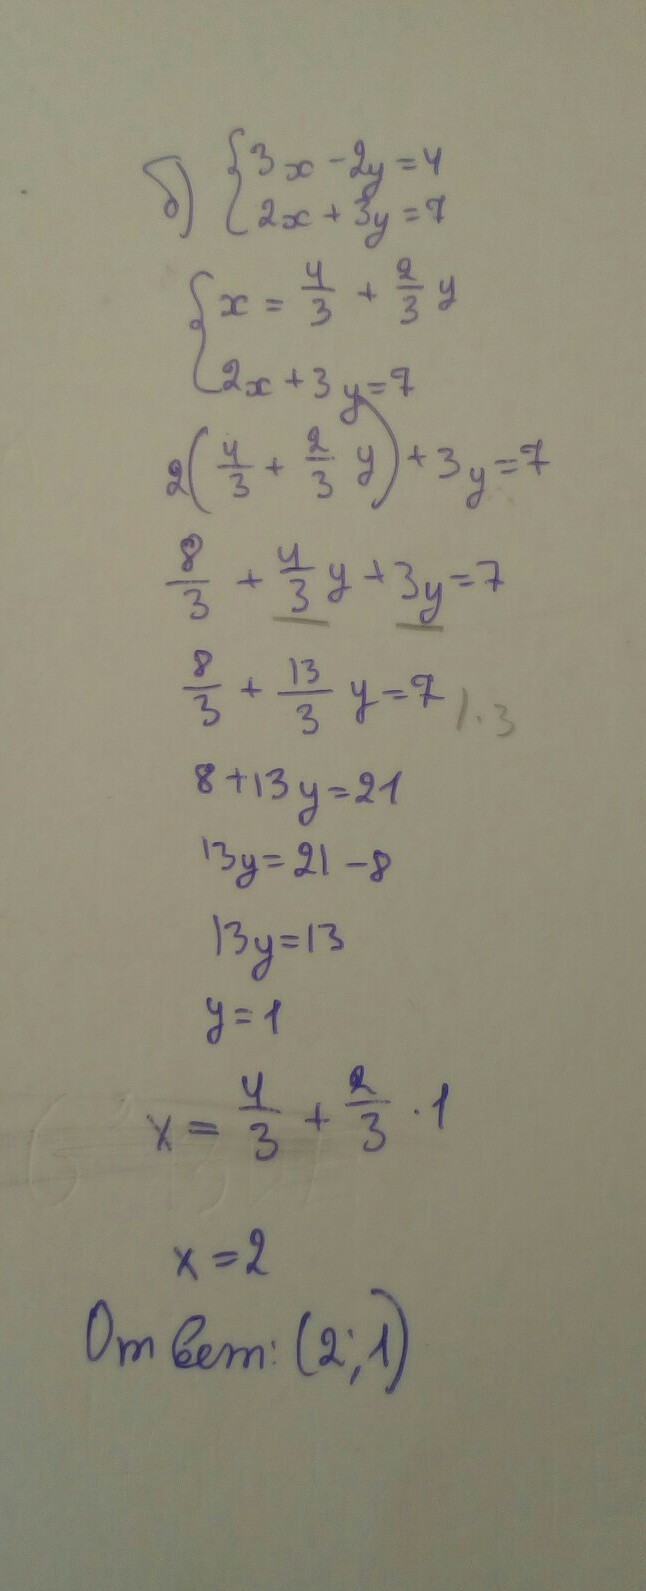 б) {3x - 2y = 4
2x + 3y = 7
{x = 4/3 + 2/3 y
2x + 3y = 7
2(4/3 + 2/3 y) + 3y = 7
8/3 + 4/3 y + 3y = 7
8/3 + 13/3 y = 7 | · 3
8 + 13y = 21
13y = 21 - 8
13y = 13
y = 1
x = 4/3 + 2/3 · 1
x = 2
Ответ: (2; 1)